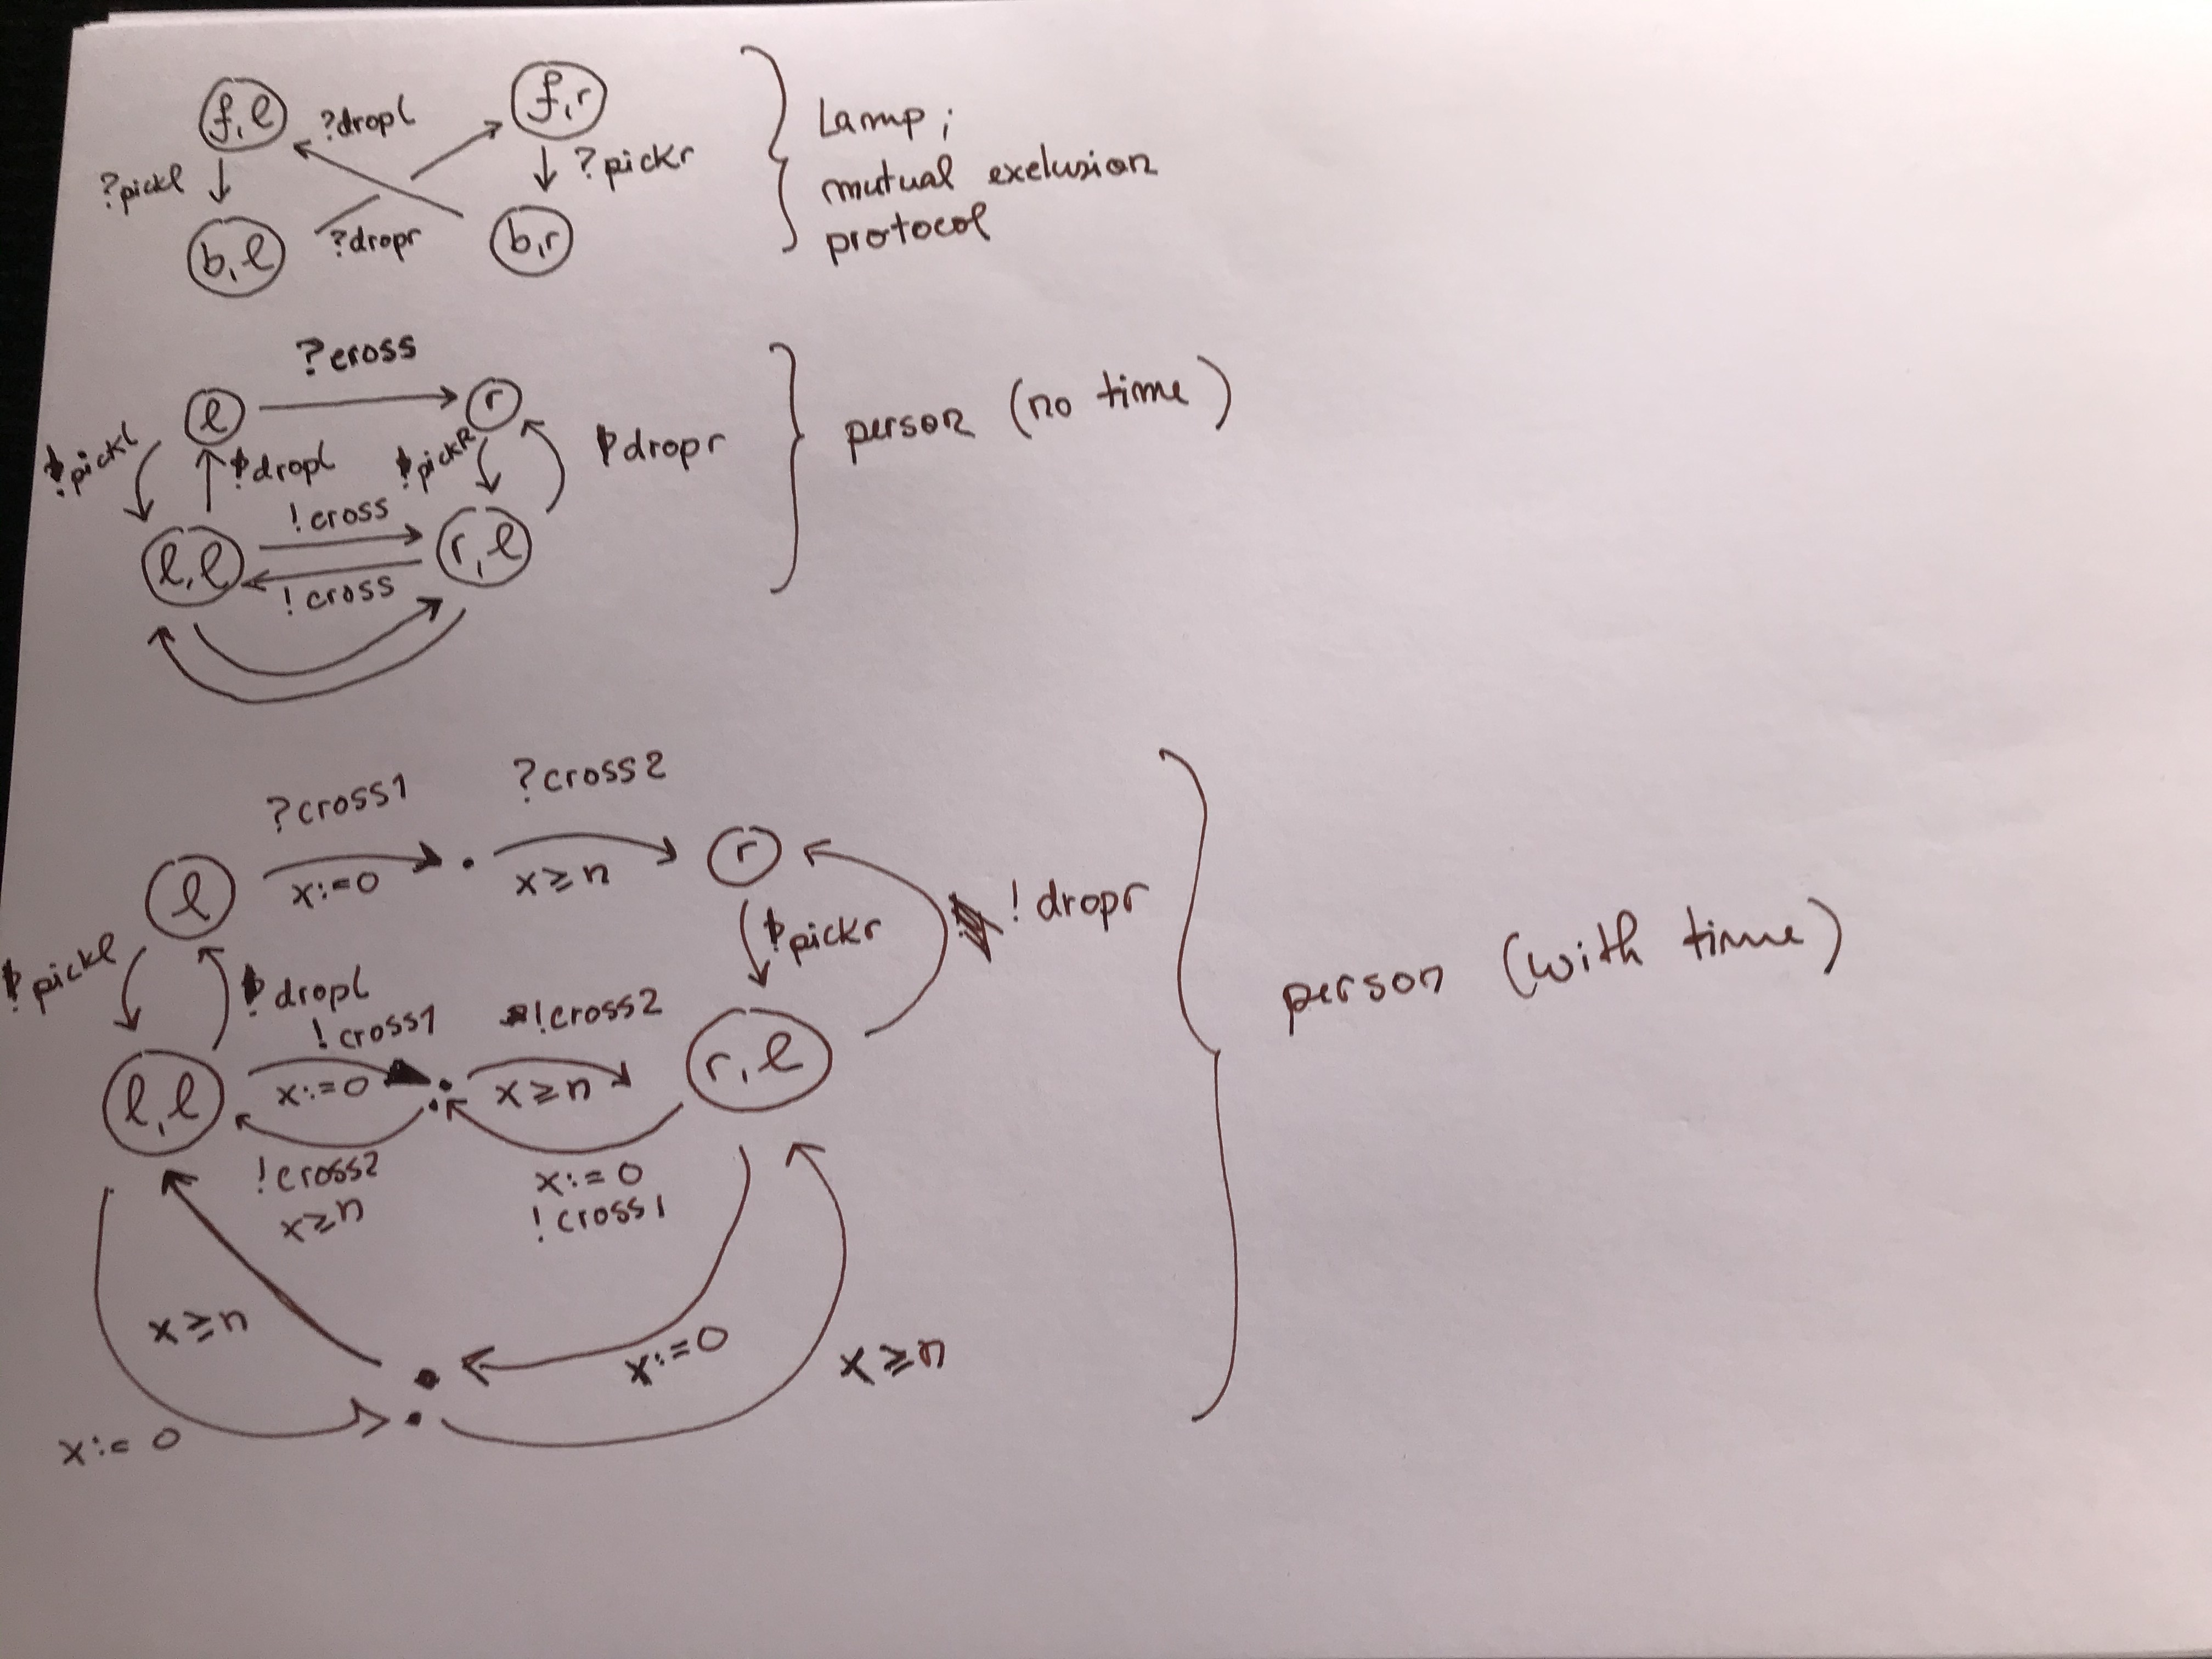 f,l
?dropl
f,r
?pickl
?pickr
b,l
?dropr
b,r
Lamp;
mutual exclusion
protocol
?cross
l
r
!pickl
!dropl
!pickR
!dropr
!cross
l,l
r,l
!cross
person (no time)
?cross1
?cross2
l
x:=0
x≥n
r
!pickl
!dropl
!pickr
!dropr
!cross1
!cross2
l,l
x:=0
x≥n
r,l
!cross2
x≥n
x:=0
!cross1
x≥n
x:=0
x≥n
x:=0
person (with time)